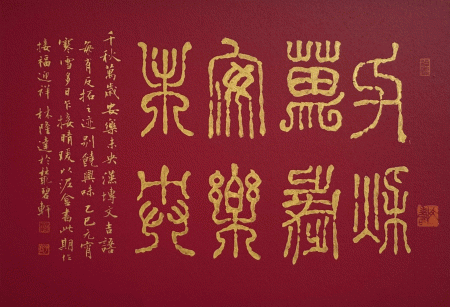 千秋
萬歲
安樂
未央
千秋萬歲安樂未央漢磚文吉語
每有反拓之迹別饒興味乙巳元宵
寒雪多日乍接晴暖以泥金書此期
接福迎祥 林隆達於碧軒